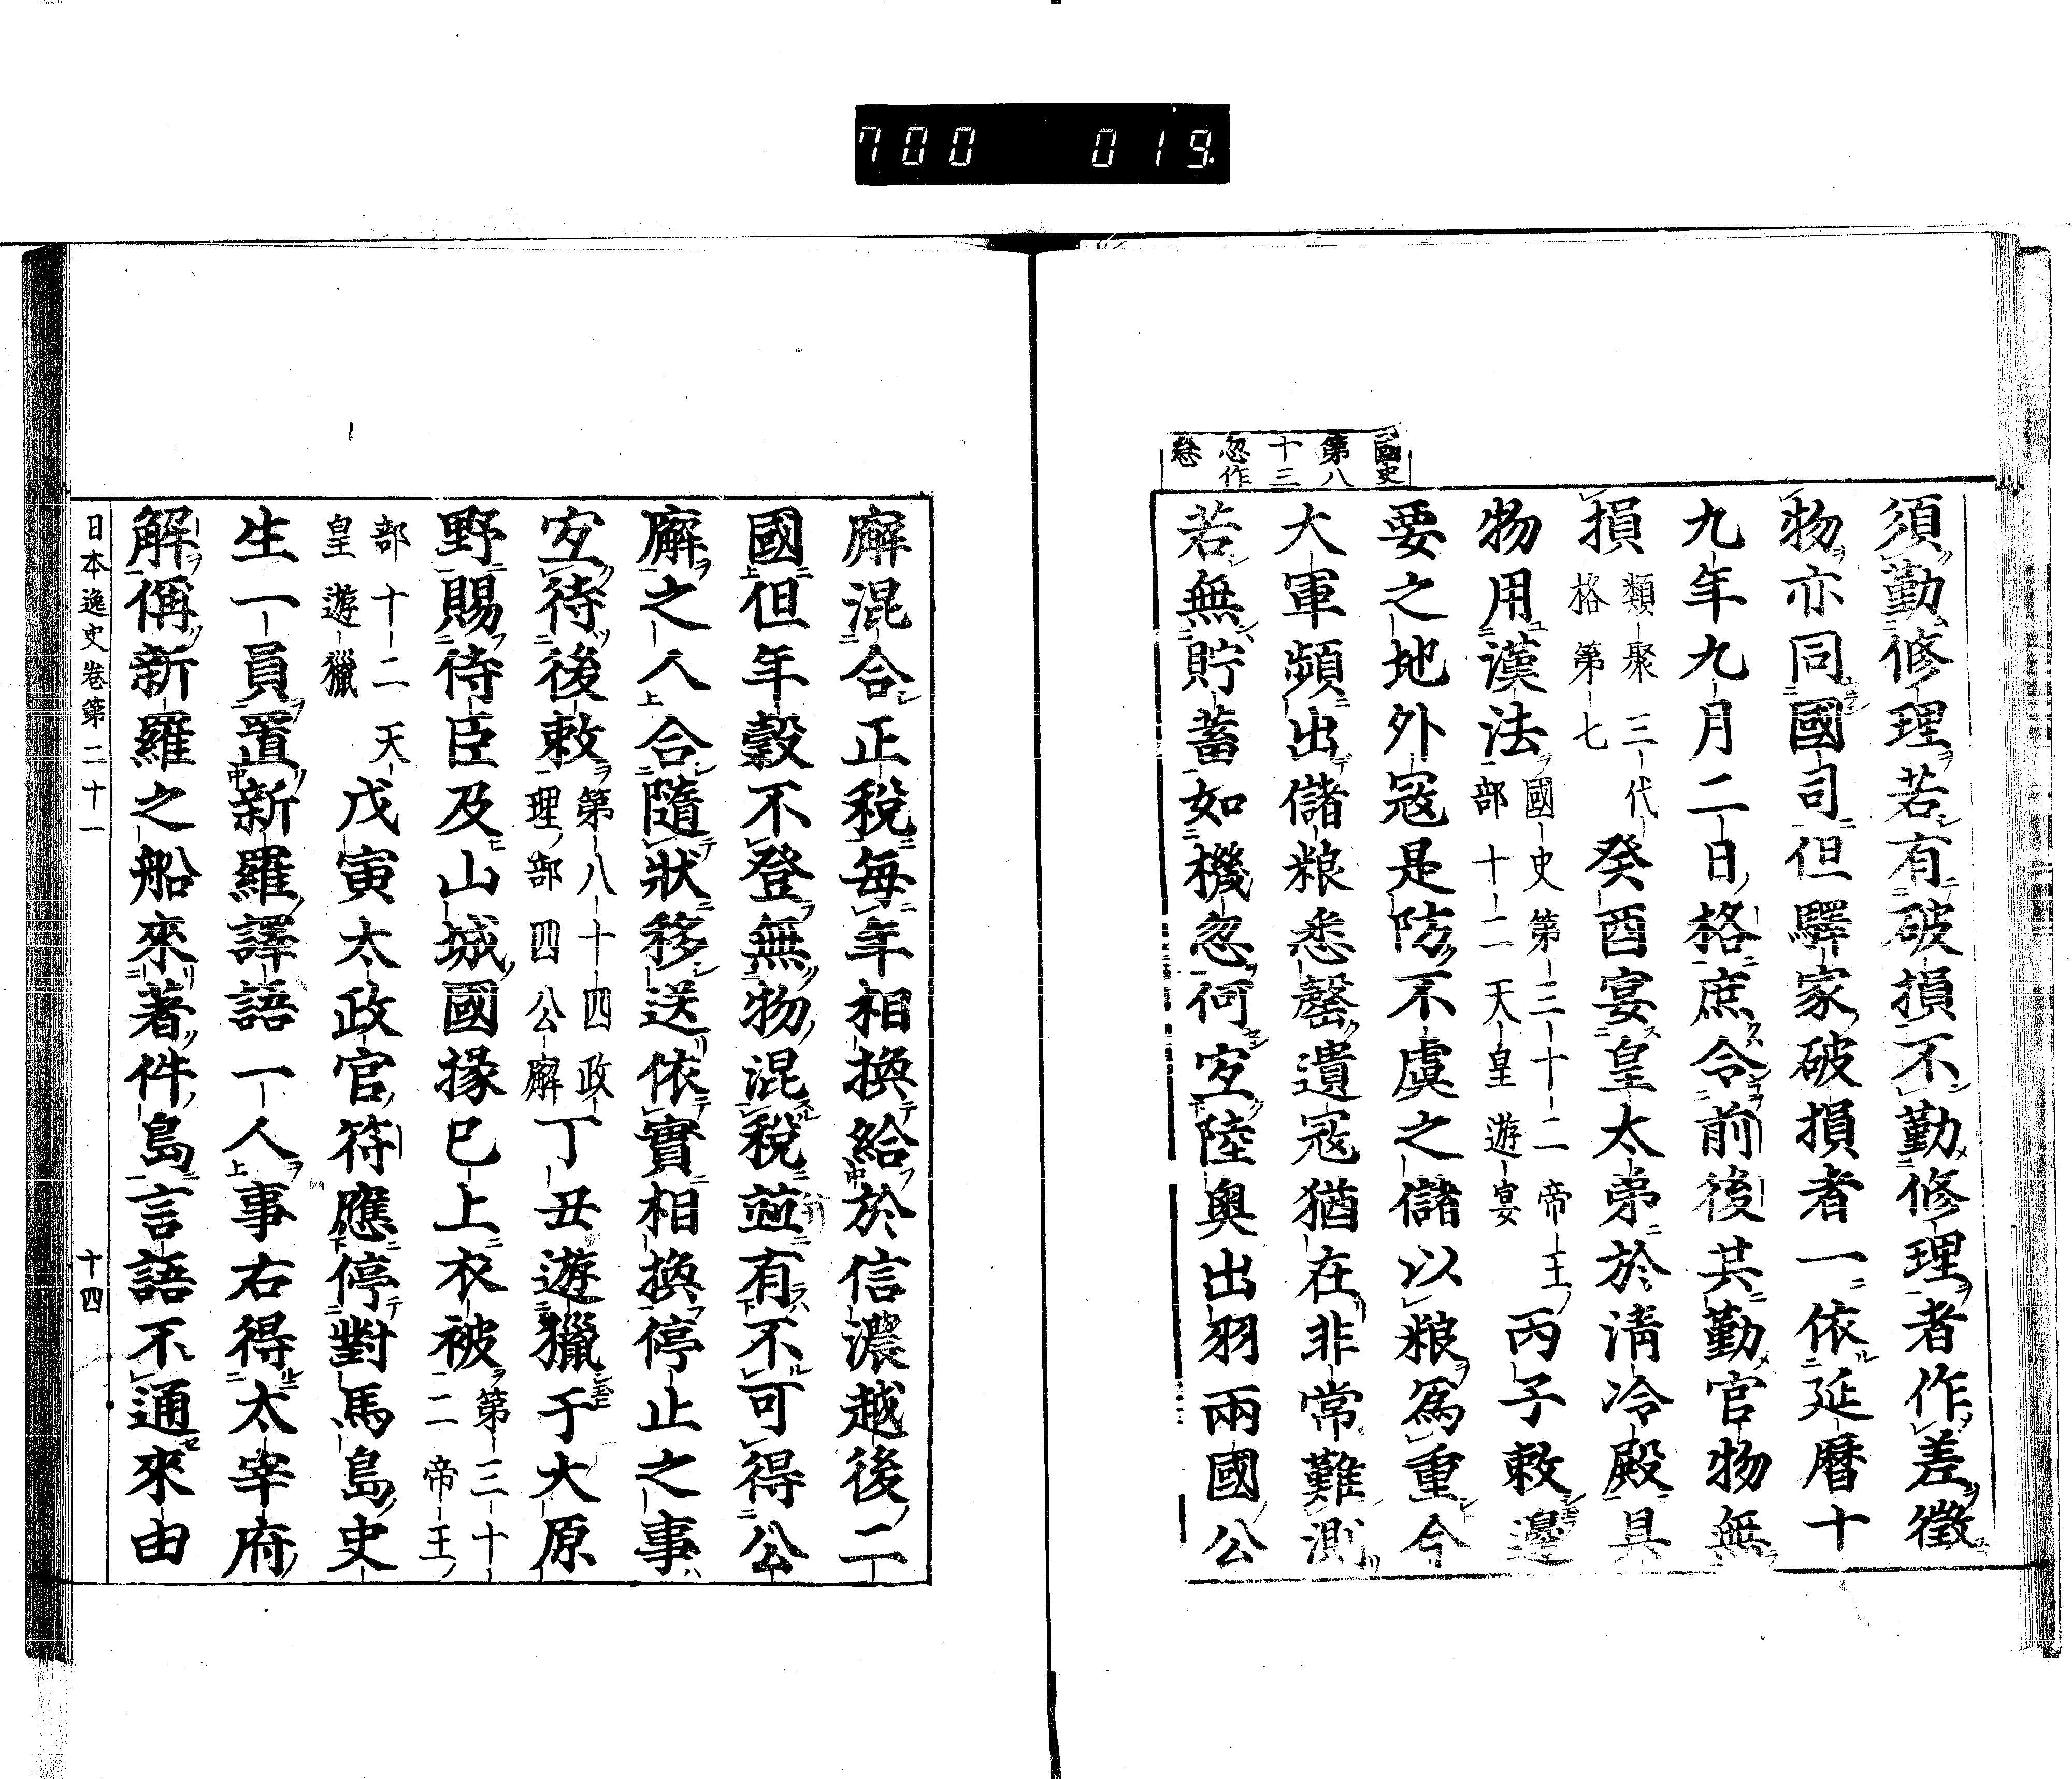 700 019
國史
第八
十三
忽作
須勤修理若有破損不勤修理者作差徵
物亦同國司但驛家破損者一依延曆十
九年九月二日格庶令前後共勤官物無
損 類聚三代
格第七 癸酉宴皇太弟於淸冷殿具
物用漢法 國史第三十二帝王
部十二天皇遊宴 丙子敕邊
要之地外寇是防不虞之儲以粮爲重今
大軍頻出儲粮悉罄遺寇猶在非常難測
若無貯蓄如機忽何宐陸奧出羽兩國公
廨混合正稅每年相換給於信濃越後二
國但年穀不登無物混稅並有不可得公
廨之人合隨狀移送依實相換停止之事
宐待後敕 第八十四政
理部四公廨 丁丑遊獵于大原
野賜侍臣及山城國掾已上衣被 第三十
二帝王
部十二天
皇遊獵 戊寅太政官符應停對馬島史
生一員置新羅譯語一人事右得太宰府
解偁新羅之船來著件島言語不通來由
日本逸史卷第二十一
十四